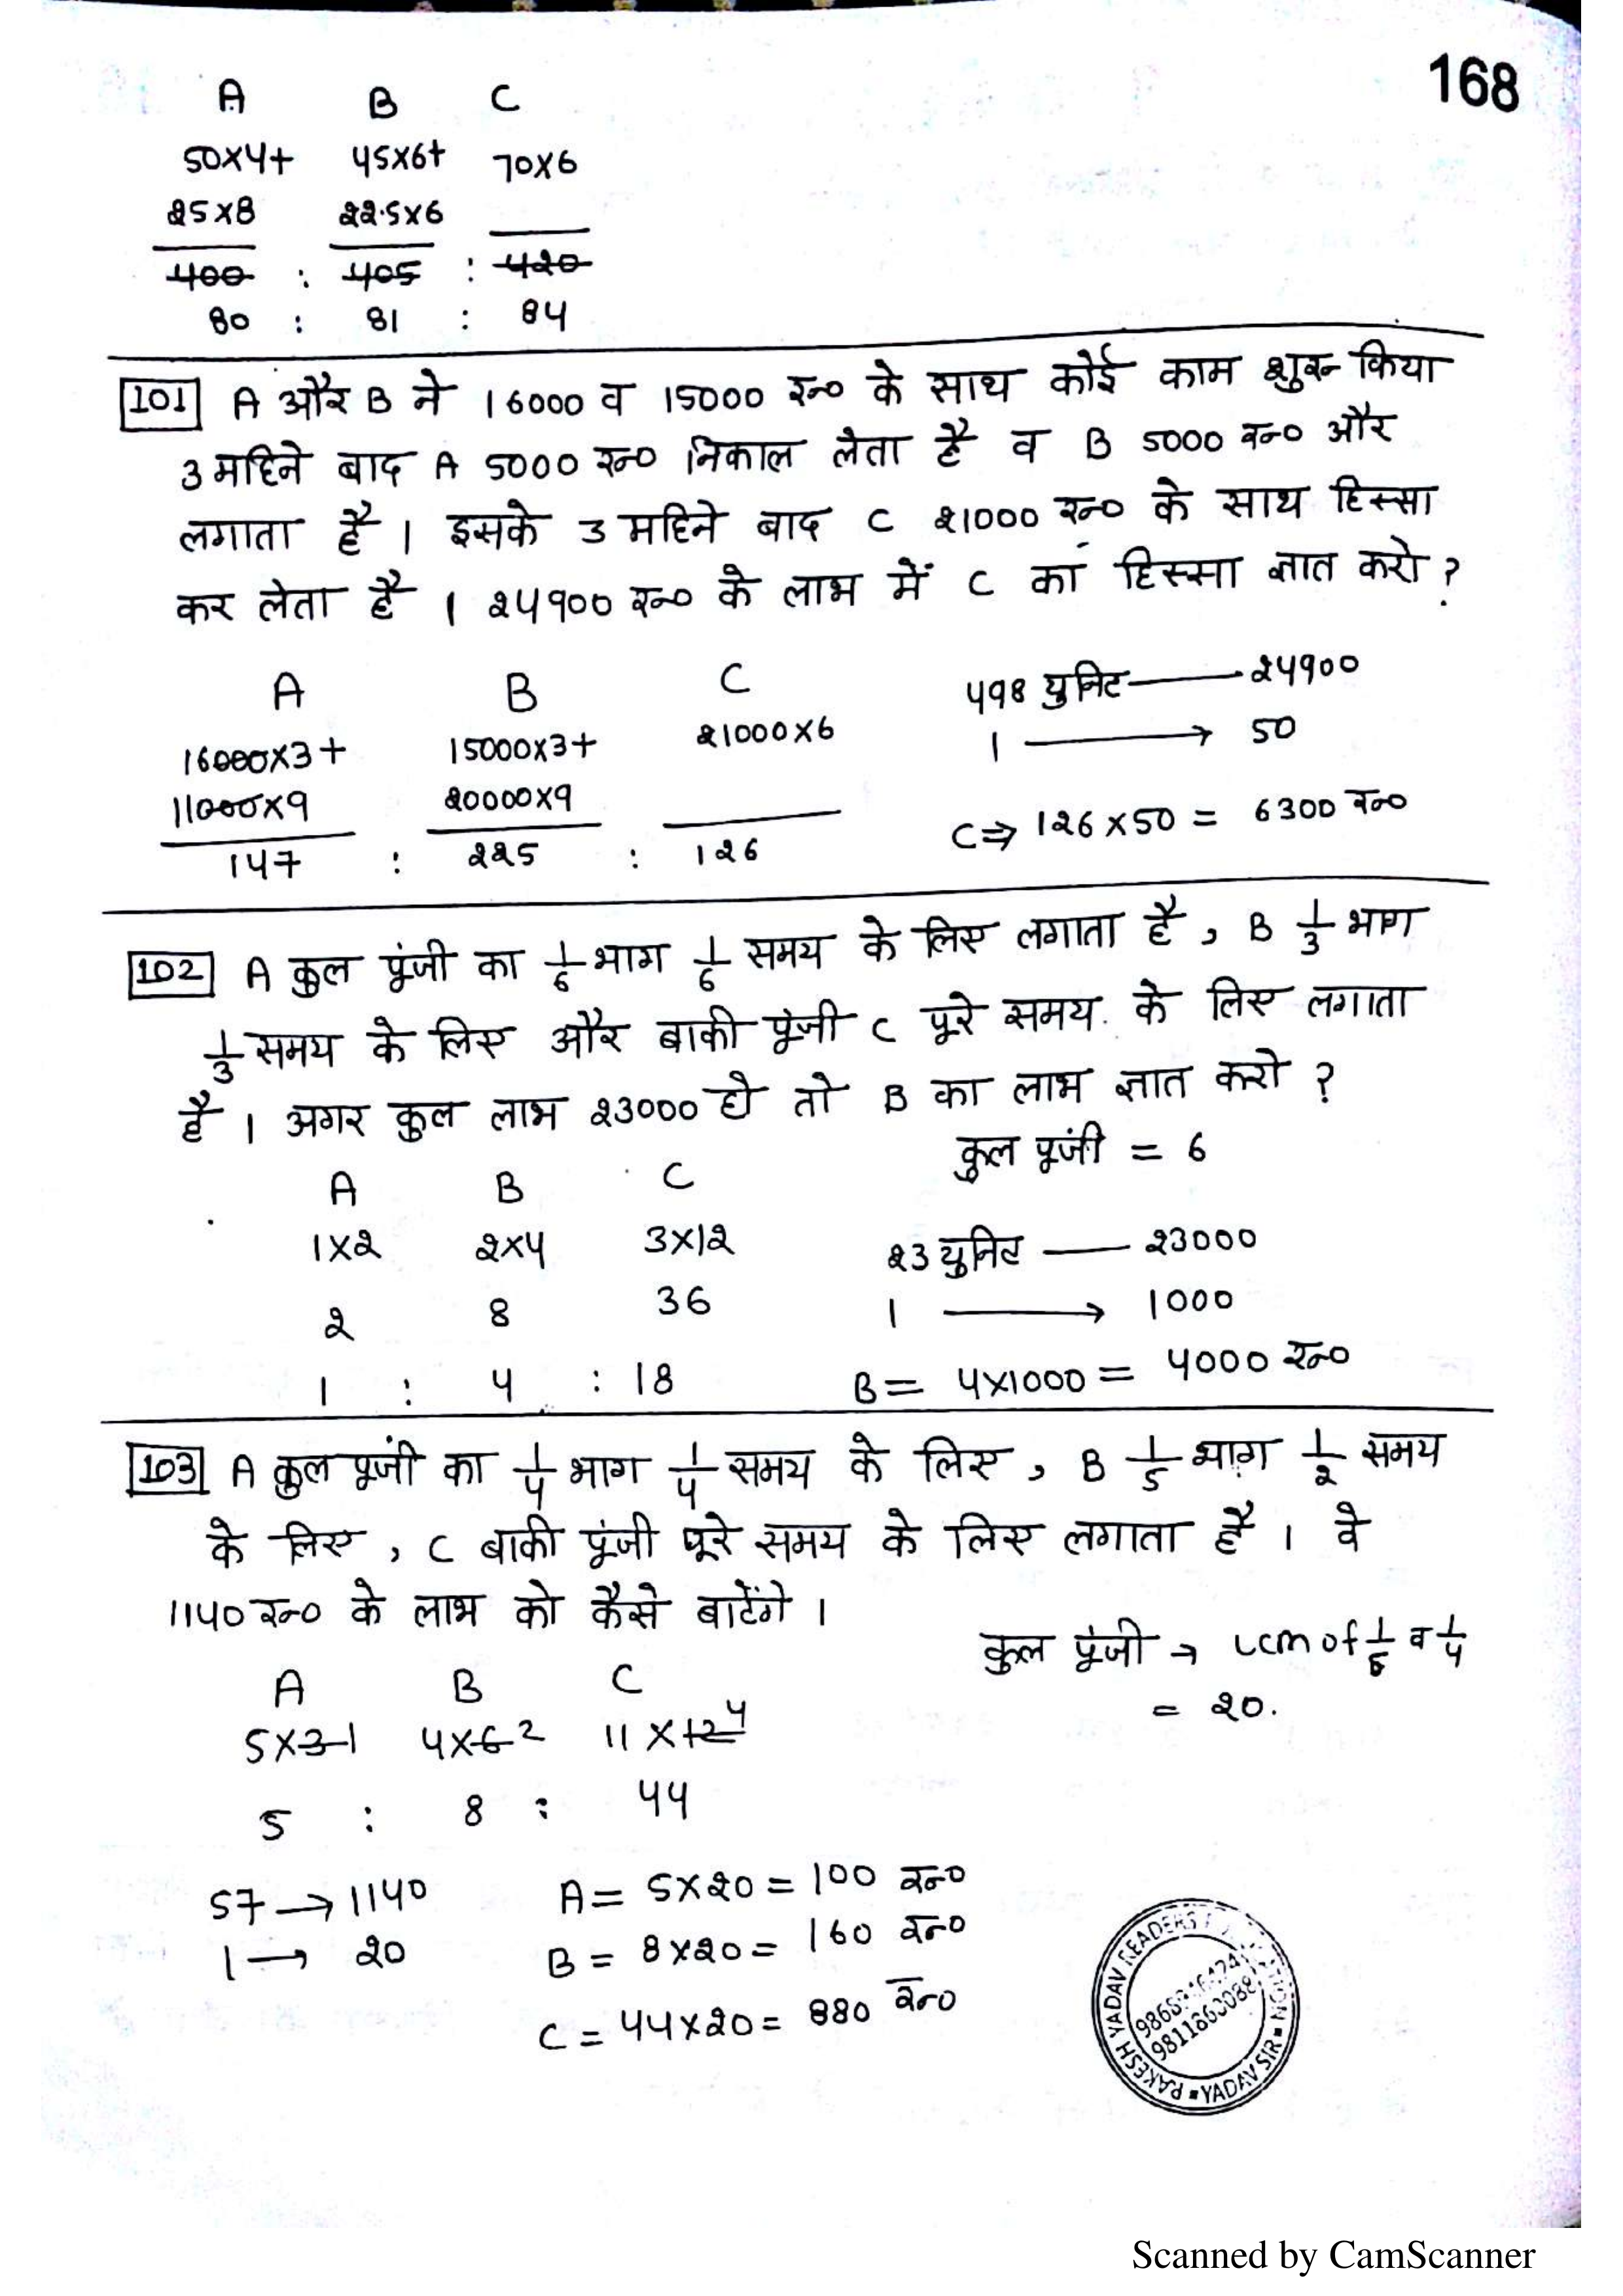 168
A B C
50×4+ 45×6+ 70×6
25×8 22.5×6
400 : 405 : 420
80 : 81 : 84
101 A और B ने 16000 व 15000 रु० के साथ कोई काम शुरू किया
3 महिने बाद A 5000 रु० निकाल लेता है व B 5000 रु० और
लगाता है । इसके 3 महिने बाद C 21000 रु० के साथ हिस्सा
कर लेता है । 24900 रु० के लाभ में C का हिस्सा ज्ञात करो ?
A B C 498 युनिट — 24900
16000×3+ 15000×3+ 21000×6 1 → 50
11000×9 20000×9 C ⇒ 126×50 = 6300 रु०
147 : 225 : 126
102 A कुल पूंजी का 1/6 भाग 1/6 समय के लिए लगाता है , B 1/3 भाग
1/3 समय के लिए और बाकी पूंजी C पूरे समय के लिए लगाता
है । अगर कुल लाभ 23000 हो तो B का लाभ ज्ञात करो ?
कुल पूंजी = 6
A B C
1×2 2×4 3×12 23 युनिट — 23000
2 8 36 1 → 1000
1 : 4 : 18 B = 4×1000 = 4000 रु०
103 A कुल पूंजी का 1/4 भाग 1/4 समय के लिए , B 1/5 भाग 1/2 समय
के लिए , C बाकी पूंजी पूरे समय के लिए लगाता है । वे
1140 रु० के लाभ को कैसे बाटेंगे ।
कुल पूंजी → LCM of 1/5 व 1/4
= 20.
A B C
5×3 1 4×6 2 11×12 4
5 : 8 : 44
57 → 1140 A = 5×20 = 100 रु०
1 → 20 B = 8×20 = 160 रु०
C = 44×20 = 880 रु०
RAKESH YADAV READERS
YADAV SIR
9811860088
Scanned by CamScanner